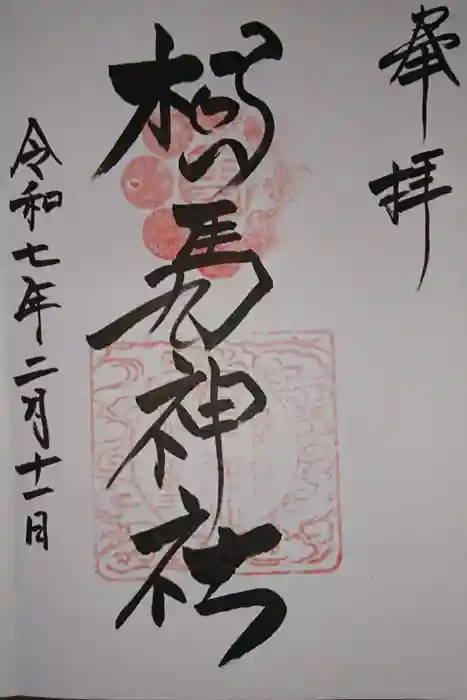 奉拝
相馬神社
令和七年二月十一日